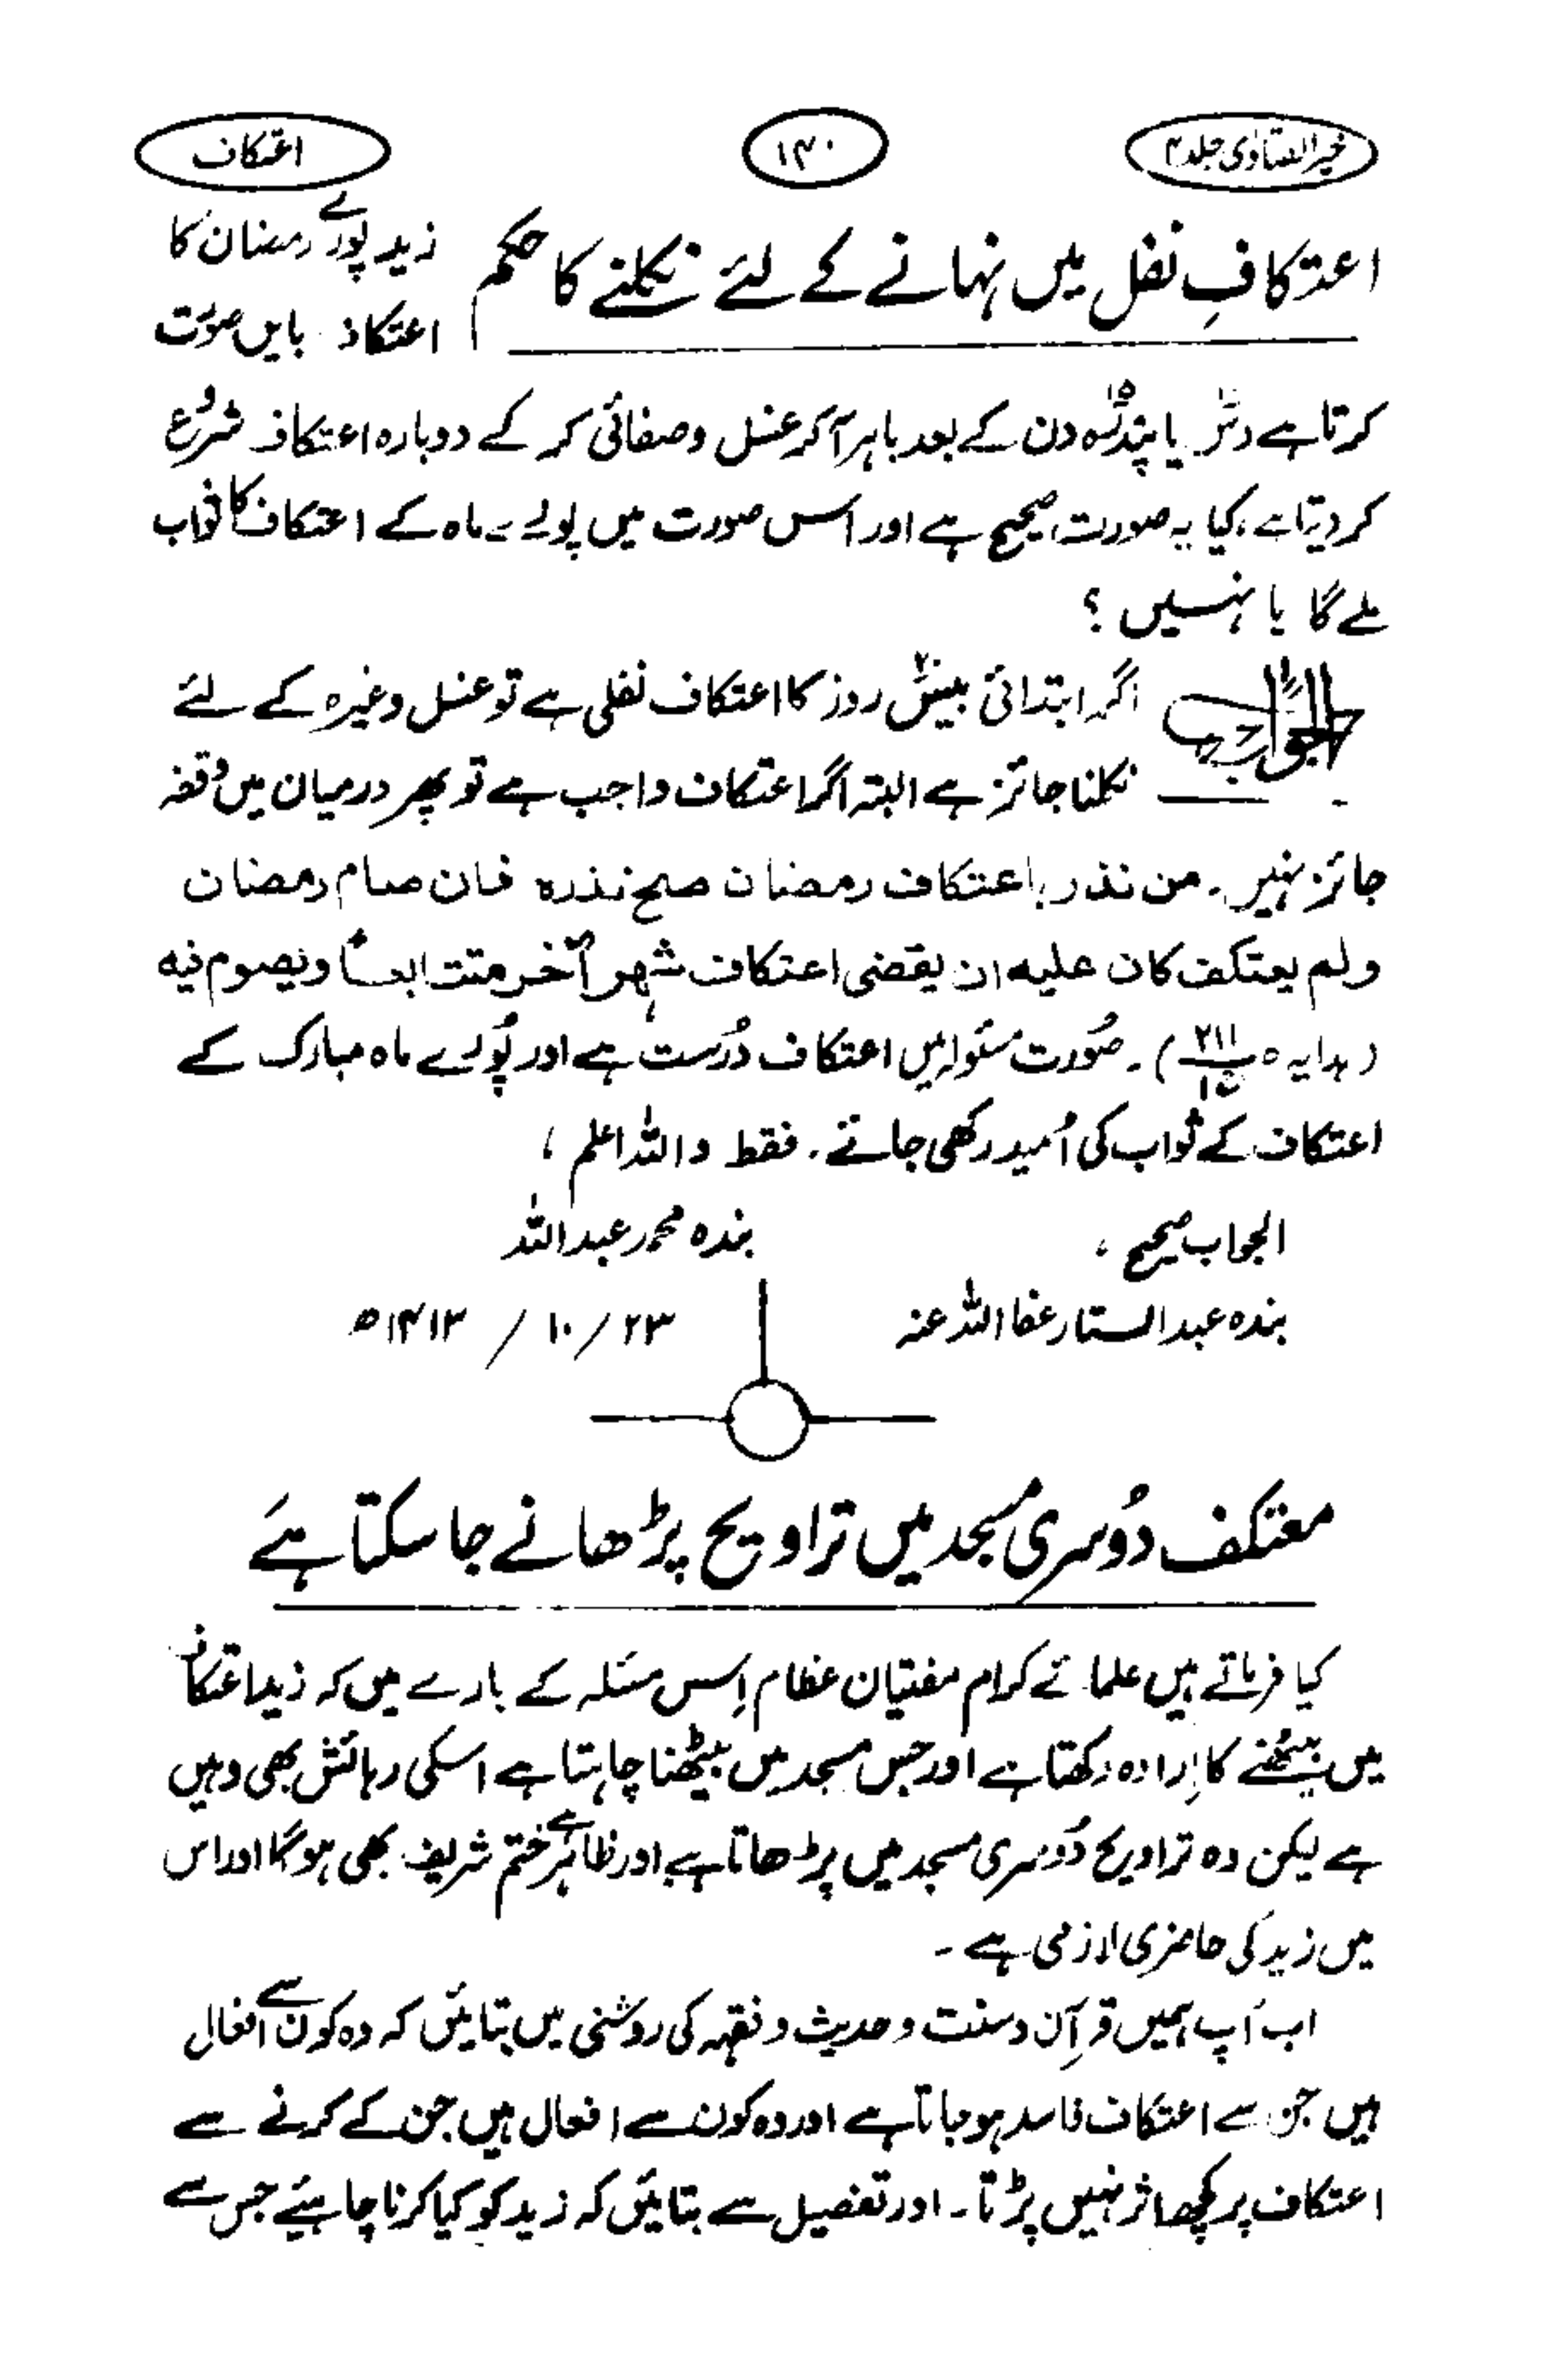 خیر الفتاوی جلد ۴
۱۴۰
اعتکاف
اعتکافِ نفل میں نہانے کے لئے نکلنے کا حکم
زید پورے رمضان کا
اعتکاف بایں صورت
کرتا ہے دس یا پندرہ ۱۵ دن کے بعد باہر آ کر غسل و صفائی کر کے دوبارہ اعتکاف شروع
کر دیتا ہے ، کیا یہ صورت صحیح ہے اور اس صورت میں پورے ماہ کے اعتکاف کا ثواب
ملے گا یا نہیں ؟
الجواب
اگر ابتدائی بیس ۲۰ روز کا اعتکاف نفلی ہے تو غسل وغیرہ کے لئے
نکلنا جائز ہے البتہ اگر اعتکاف واجب ہے تو پھر درمیان میں وقفہ
جائز نہیں ۔ من نذر باعتکاف رمضان صح نذرہ فان صام رمضان
ولم یعتکف کان علیہ ان یقضی اعتکاف شہر آخر متتابعاً و یصوم فیہ
(ہدایہ ص ۲۱۱ ج ۱) ۔ صُورت مسئولہ میں اعتکاف دُرست ہے اور پُورے ماہ مبارک کے
اعتکاف کے ثواب کی اُمید رکھی جائے ۔ فقط واللہ اعلم ،
الجواب صحیح ،
بندہ محمد عبداللہ
بندہ عبدالستار عفا اللہ عنہ
۲۳ / ۱۰ / ۱۴۱۳ھ
معتکف دُوسری مسجد میں تراویح پڑھانے جا سکتا ہے
کیا فرماتے ہیں علمائے کرام مفتیان عظام اِس مسئلہ کے بارے میں کہ زید اعتکاف
میں بیٹھنے کا اِرادہ رکھتا ہے اور جس مسجد میں بیٹھنا چاہتا ہے اسکی رہائش بھی وہیں
ہے لیکن وہ تراویح دُوسری مسجد میں پڑھاتا ہے اور ظاہر ہے ختم شریف بھی ہو گا اور اس
میں زید کی حاضری لازمی ہے ۔
اب آپ ہمیں قرآن و سنت و حدیث و فقہ کی روشنی میں بتائیں کہ وہ کون سے افعال
ہیں جن سے اعتکاف فاسد ہو جاتا ہے اور وہ کون سے افعال ہیں جن کے کرنے سے
اعتکاف پر کچھ اثر نہیں پڑتا ۔ اور تفصیل سے بتائیں کہ زید کو کیا کرنا چاہیئے جس سے